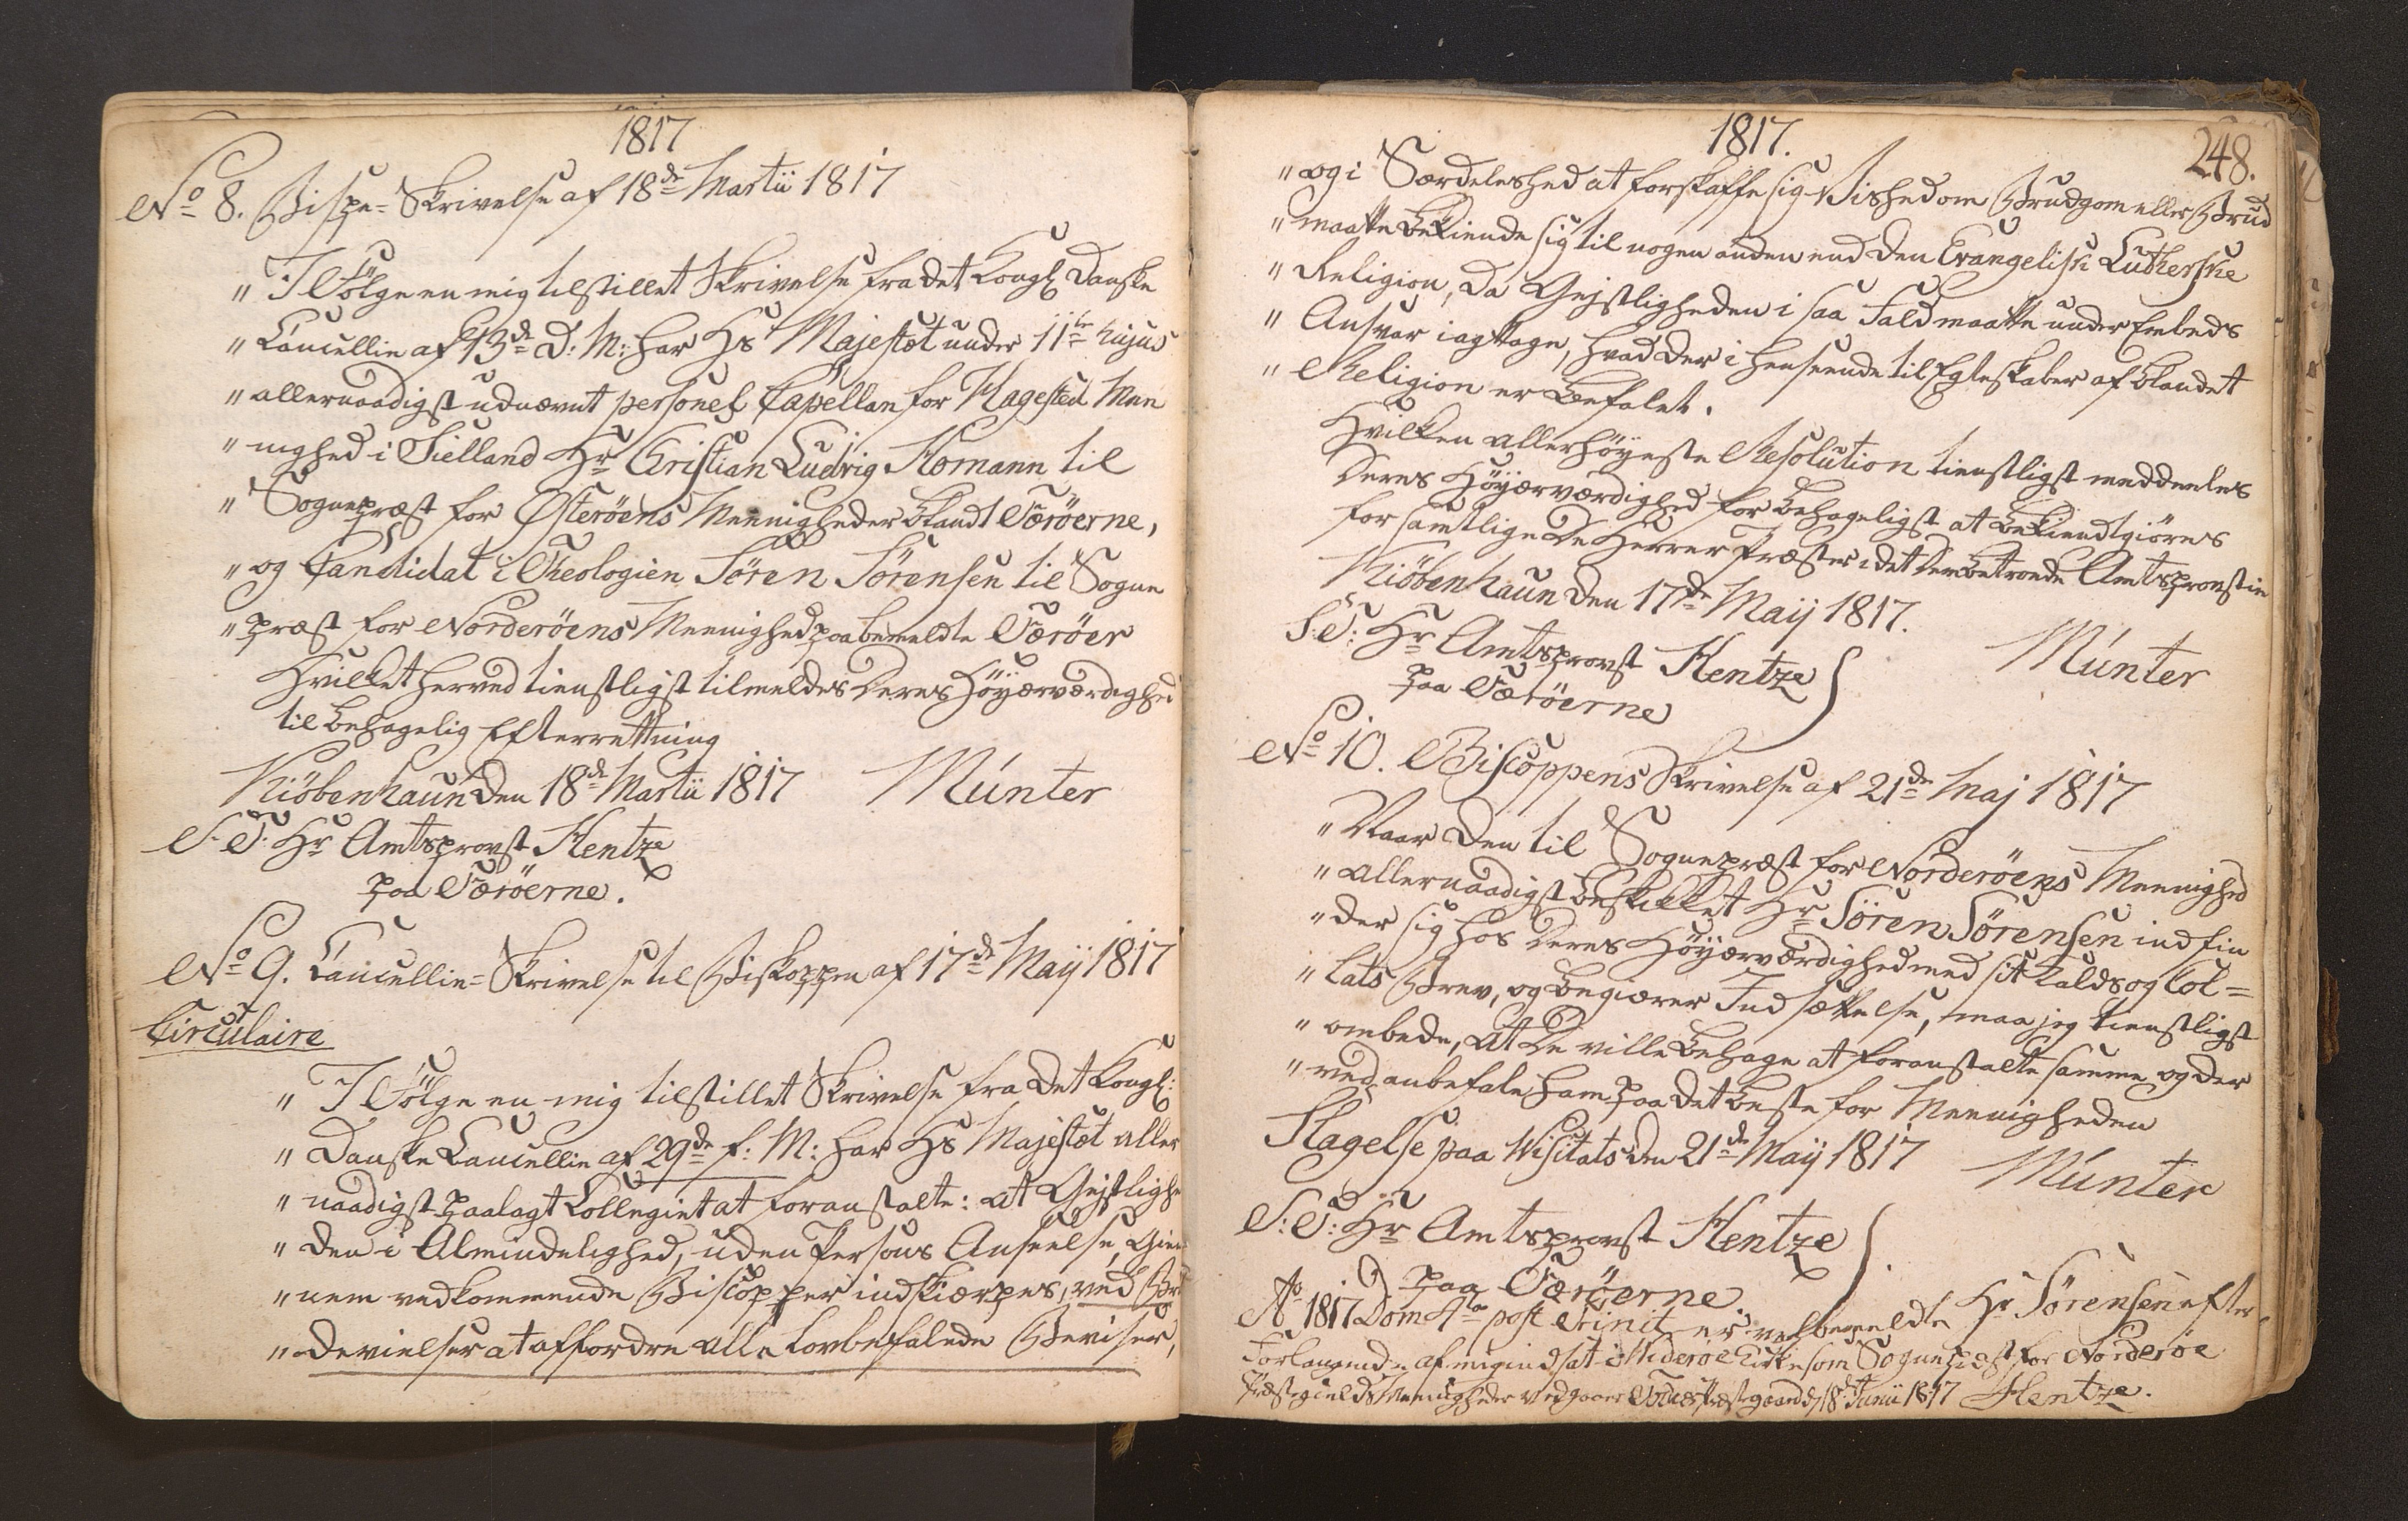 1817
No 8. Bispe-Skrivelse af 18de Martii 1817
" I Følge en mig tilstillet Skrivelse fra det Kongl: Danske
" Cancellie af 13de d: M: har Hs Majestæt under 11te hujus
" allernaadigst udnævnt personel Capellan for Hagested Men
" nighed i Sielland Hr Christian Ludvig Homann til
" Sognepræst for Østerøens Menigheder blandt Færøerne,
" og Candidat i Theologien Søren Sørensen til Sogne
" præst for Norderøens Menighed paa bemeldte Færøer
Hvilket herved tienstligst tilmeldes Deres Høyærværdighed
til behagelig Efterretning
Kiøbenhaun den 18de Martii 1817 Münter
S. T: Hr Amtsprovst Hentze
paa Færøerne.
No 9. Cancellie-Skrivelse til Biskoppen af 17de Maij 1817
Circulaire
" I Følge en mig tilstillet Skrivelse fra det Kongl:
" Danske Cancellie af 29de f: M: har Hs Majestæt aller
" naadigst paalagt Collegiet at foranstalte: at Geistlighe
" den i Almindelighed, uden Persons Anseelse, gien
" nem vedkommende Biskopper indskiærpes, ved Bru
" devielser at affordre alle lovbefalede Beviser,
1817.
248.
" og i Særdeleshed at forskaffe sig Vished om Brudgom eller Brud
" maatte bekiende sig til nogen anden end den Evangeliske Lutherske
" Religion, da Gejstligheden i saa Fald maatte under Embeds
" Ansvar iagttage, hvad der i Henseende til Egteskaber af blandet
" Religion er befalet.
Hvilken allerhøyeste Resolution tienstligst meddeeles
Deres Høyærværdighed for behageligst at bekiendtgiøres
for samtlige De Herrer Præster i det Dem betroede Amtsprovstie
Kiøbenhaun den 17de Maij 1817.
S. T: Hr Amtsprovst Hentze Münter
paa Færöerne
No 10. Biscoppens Skrivelse af 21de Maj 1817
" Naar den til Sognepræst for Norderøens Menighed
" allernaadigst beskikket Hr Søren Sørensen indfin
" der sig hos Deres Høyærværdighed med sit Kalds og Col=
" lats Brev, og begiærer Indsættelse, maa jeg tienstligst
" ombede, at De ville behage at foranstalte samme og der
" ved anbefale ham paa det beste for Menigheden
Slagelse paa Visitats den 21de Maij 1817
Münter
S: T: Hr Amtsprovst Hentze
paa Færöerne.
Ao 1817 Dom 1ta post Trinit er velbemeldte Hr Sørensen efter
Forlangende af mig indsat i Widerøe Kirke som Sognepræst for Norderøe
Præstegields Menigheder Vedgaaer Præstegaard d 18 Junii 1817 Hentze.